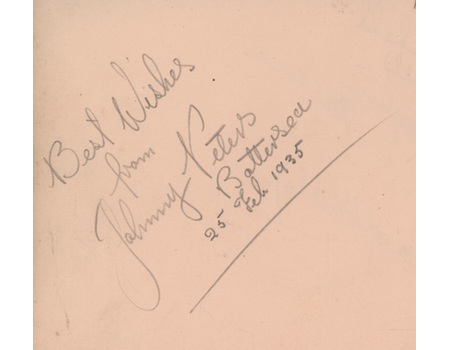 Best Wishes
from
Johnny Peters
Battersea
25 Feb 1935